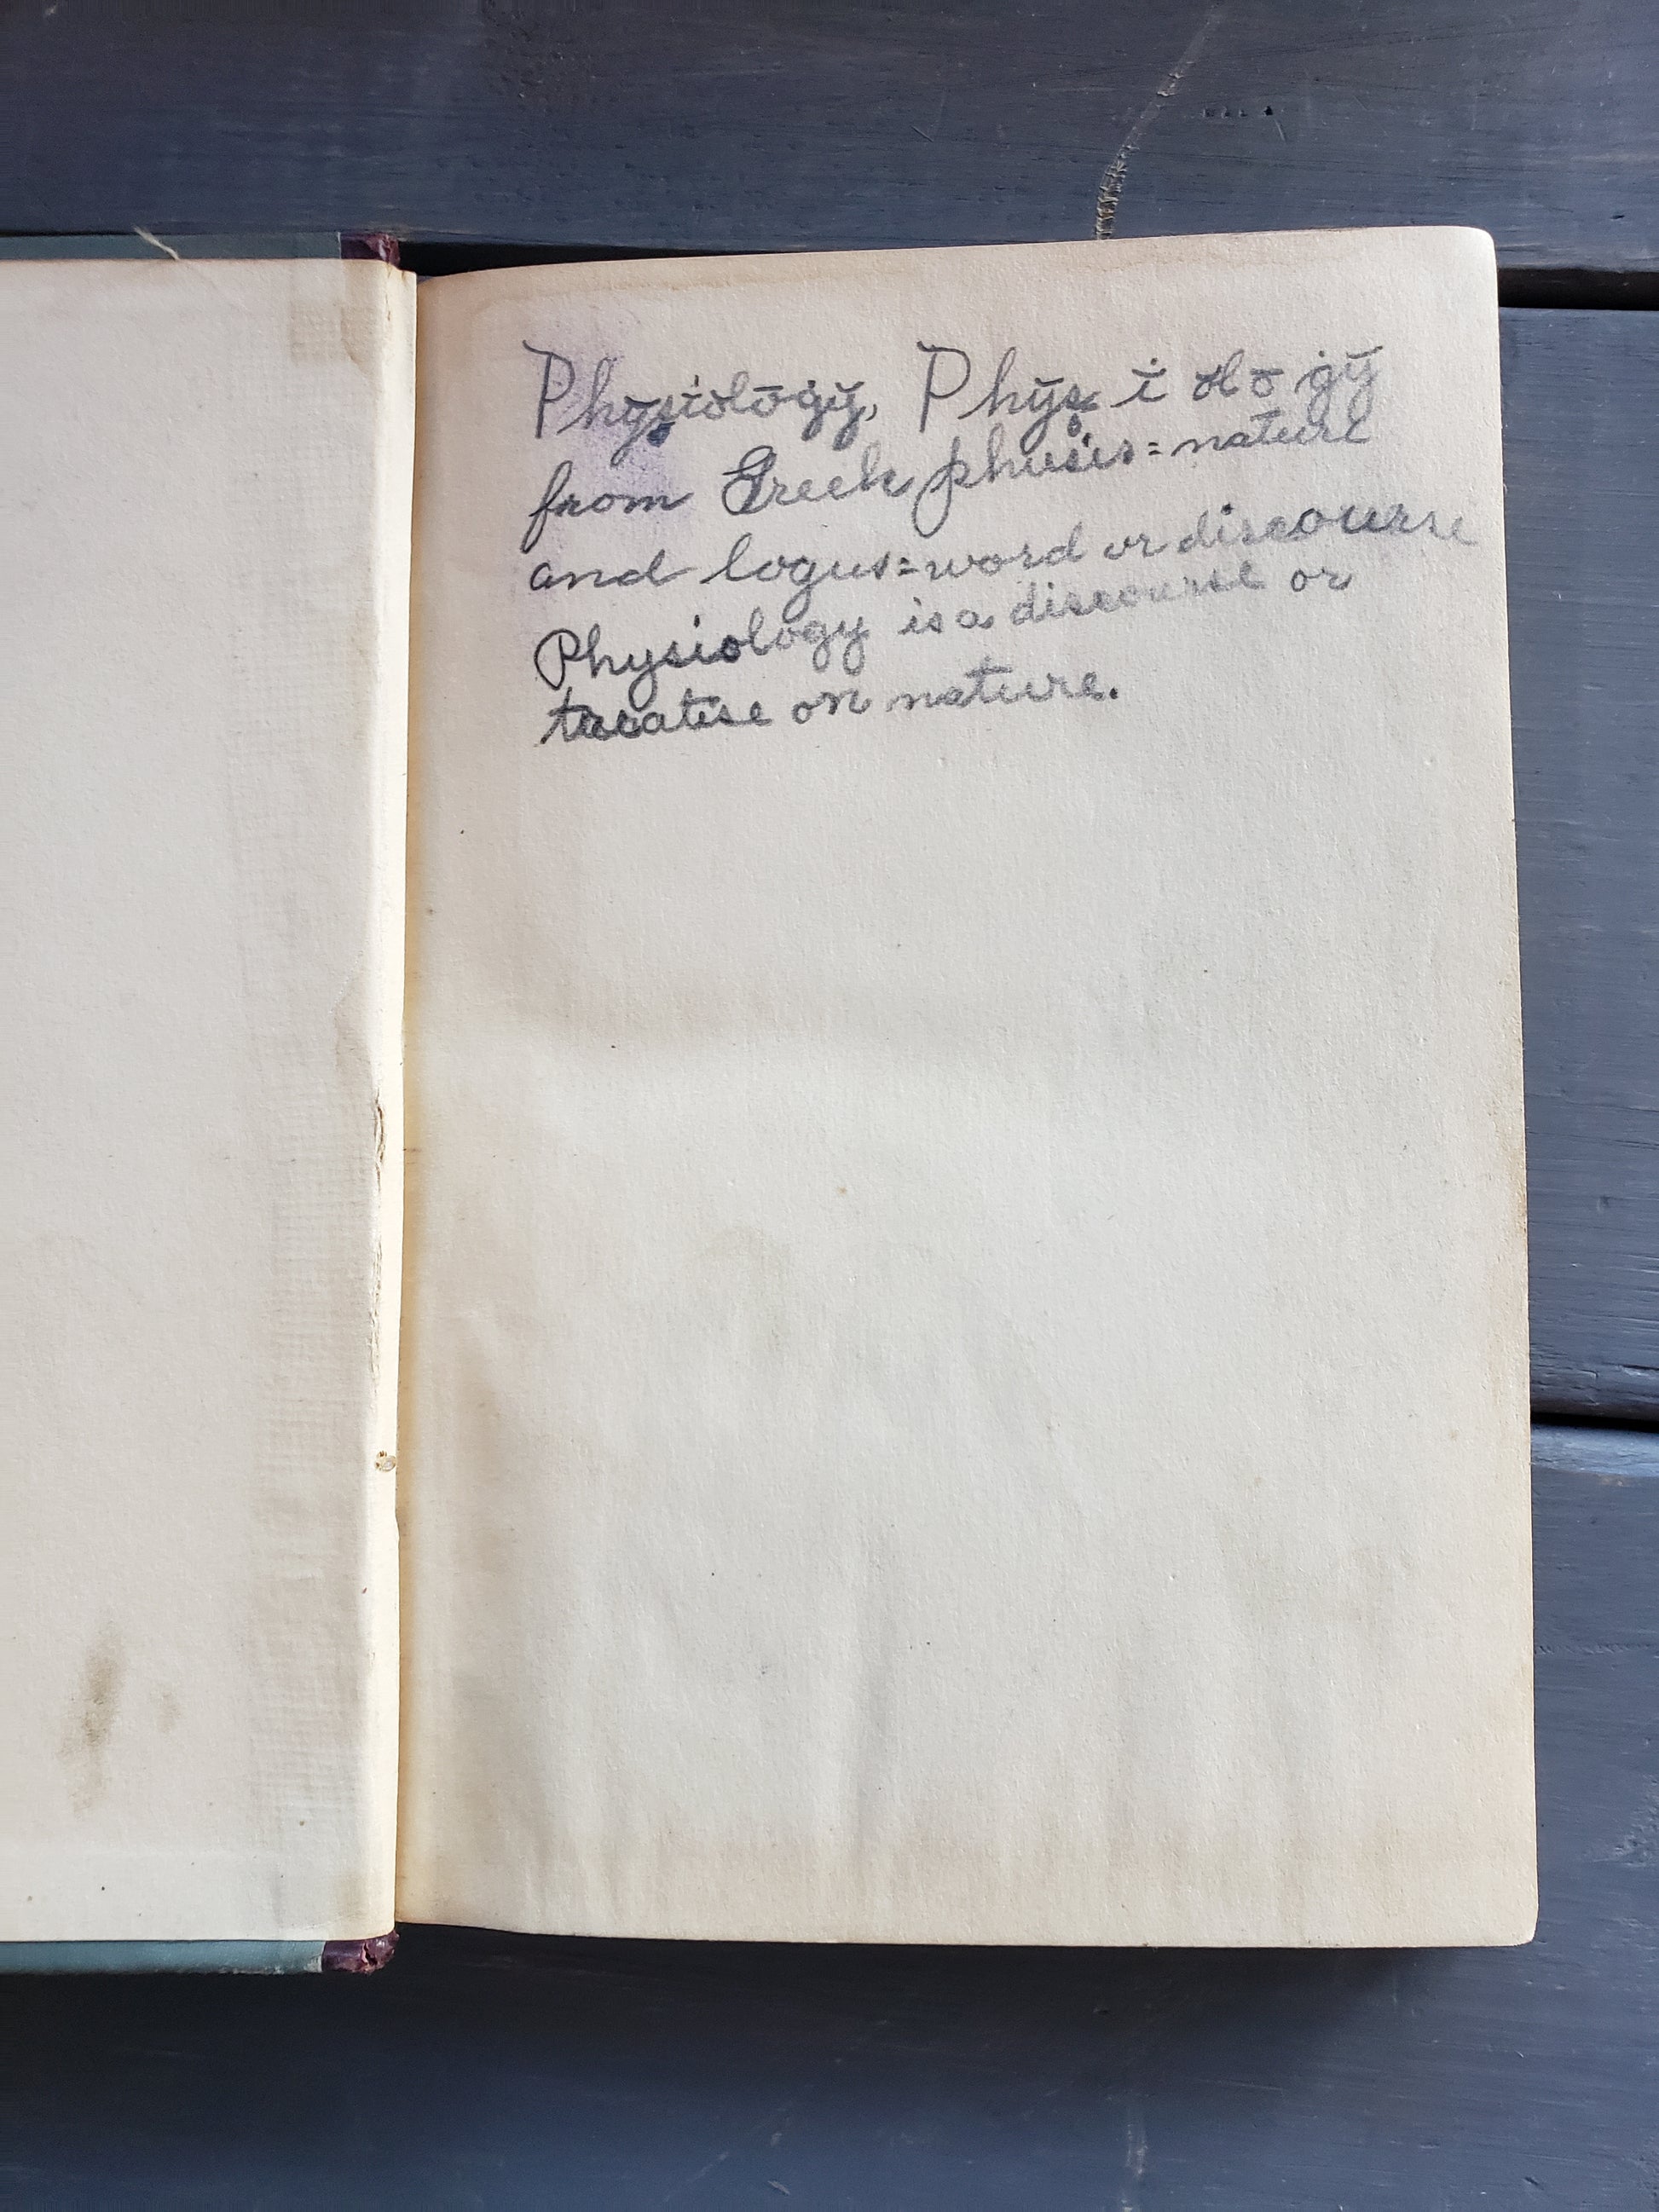 Physiology, Phys i olo gy
from Greek phusis = nature
and logus = word or discourse
Physiology is a discourse or
treatise on nature.